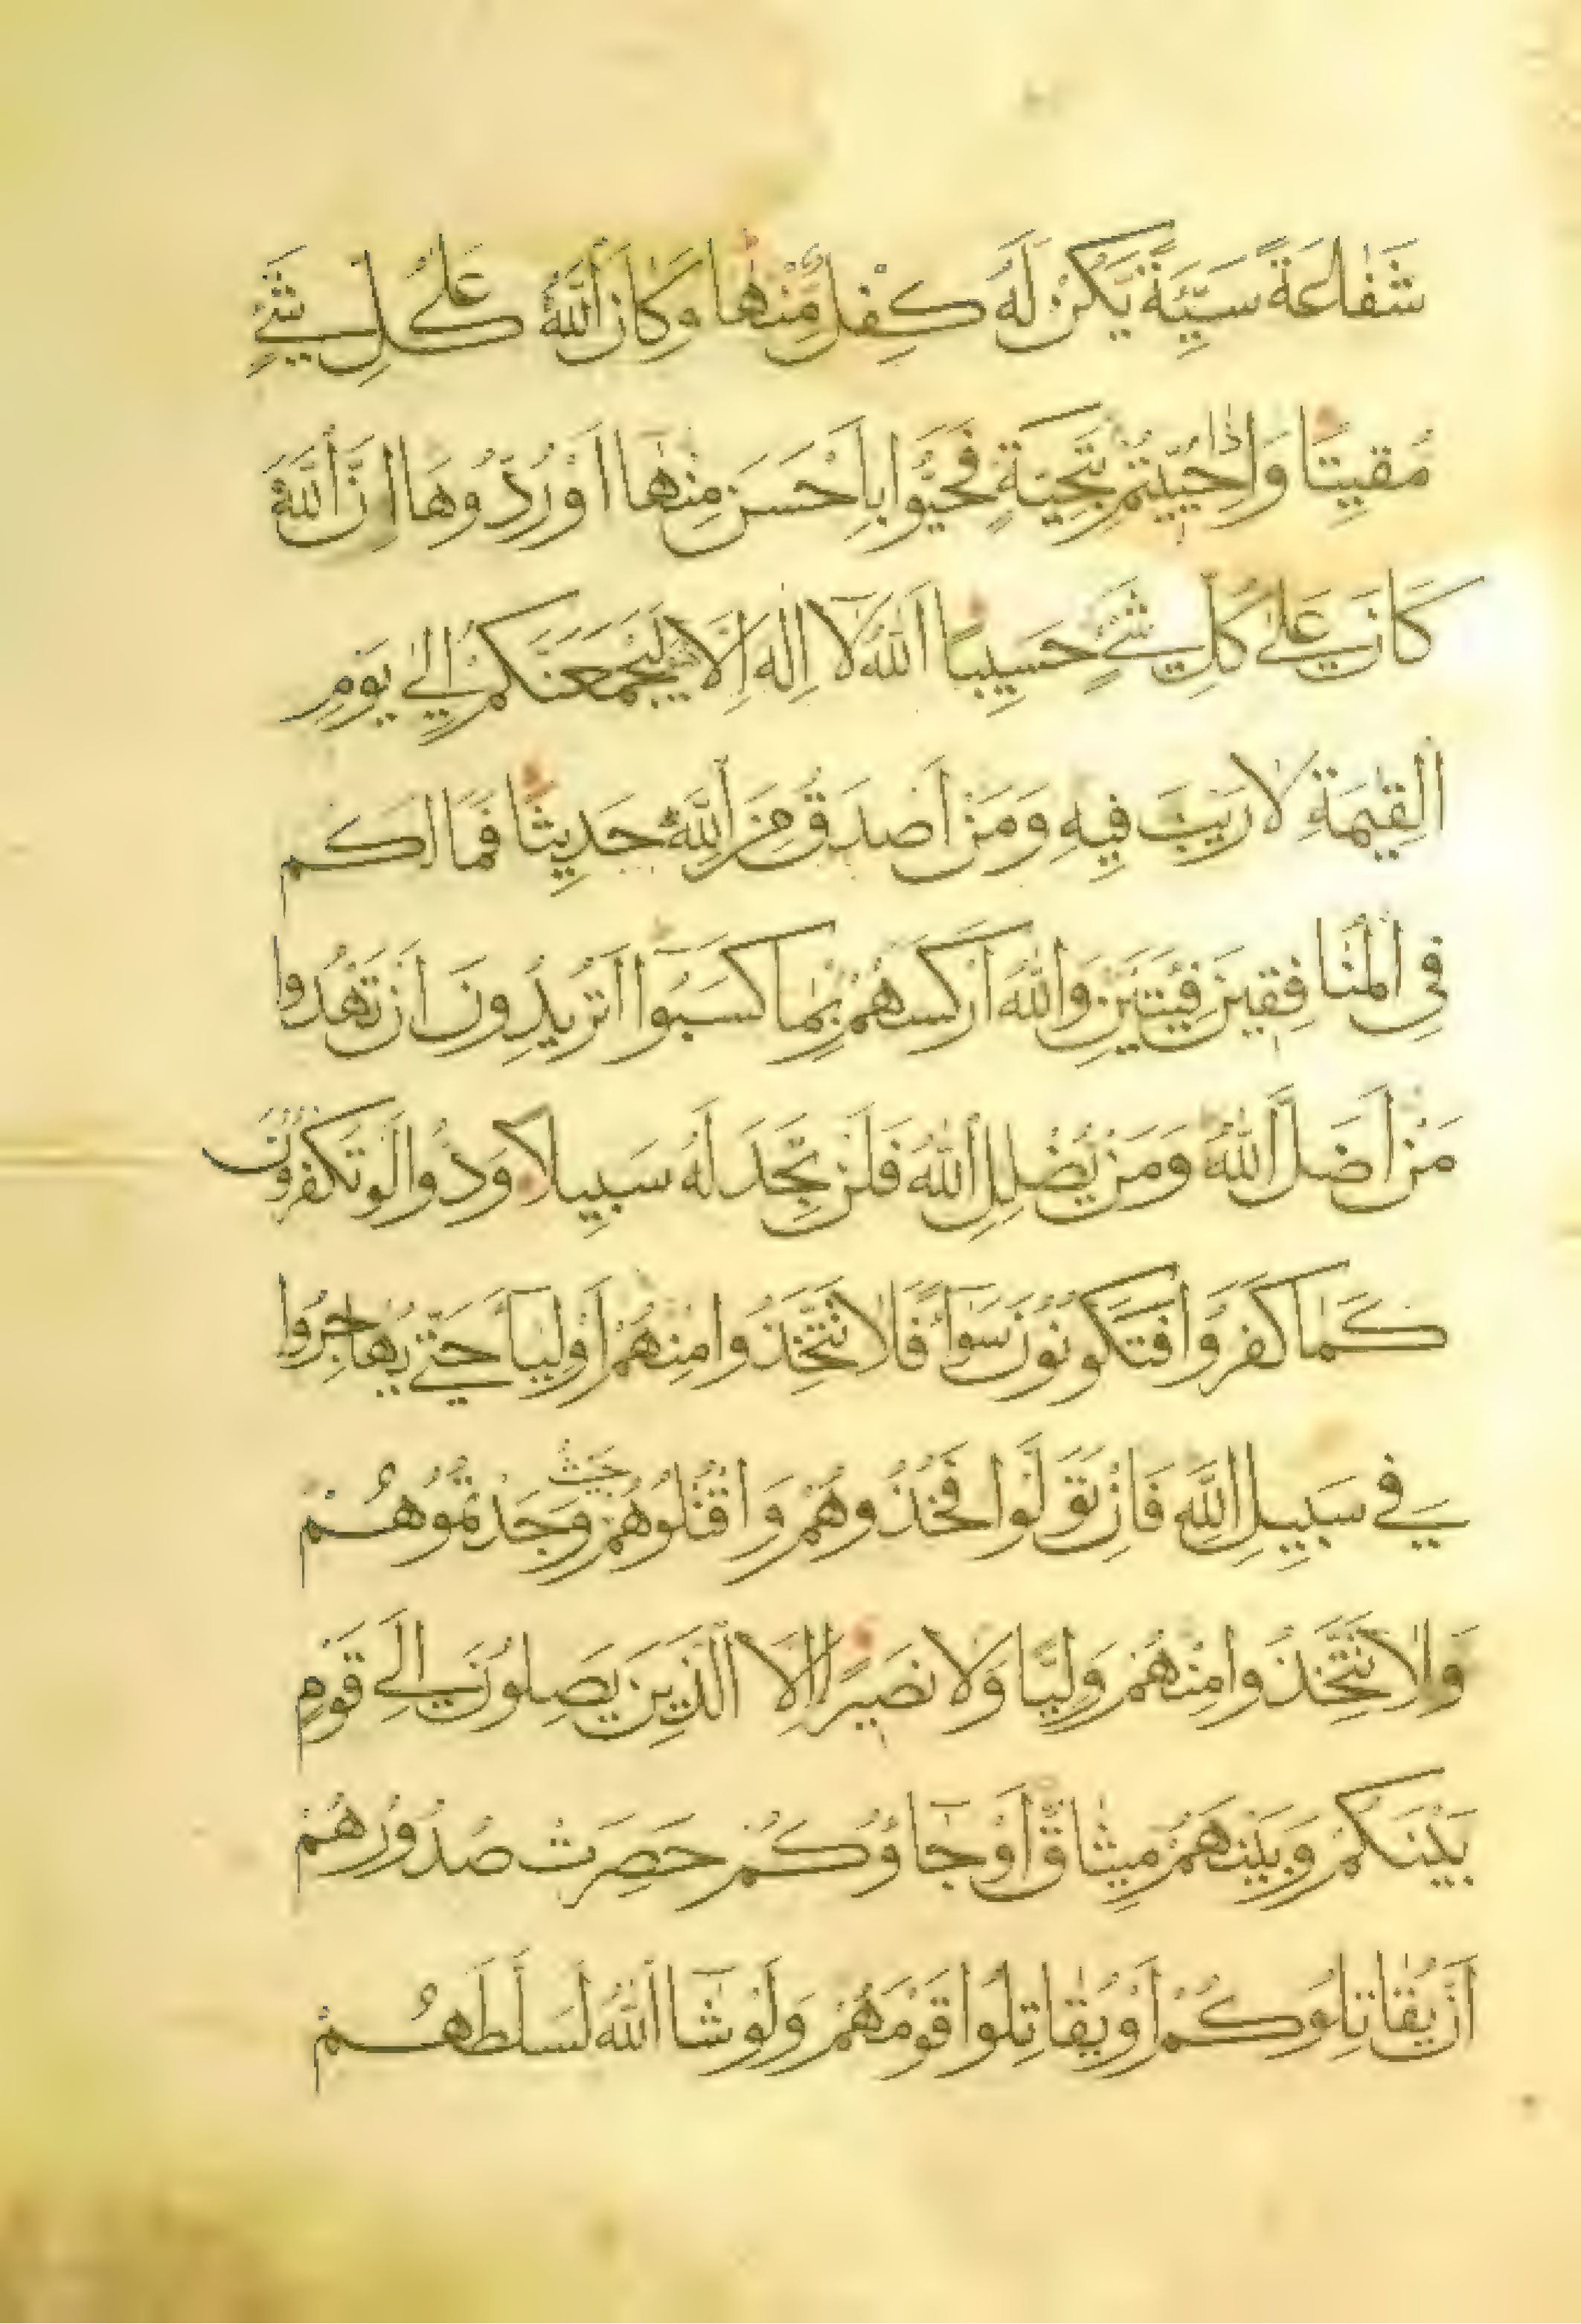 شَفَاعَةً سَيِّئَةً يَكُنْ لَهُ كِفْلٌ مِّنْهَا وَكَانَ اللَّهُ عَلَىٰ كُلِّ شَيْءٍ
مُقِيتًا وَإِذَا حُيِّيتُمْ بِتَحِيَّةٍ فَحَيُّوا بِأَحْسَنَ مِنْهَا أَوْ رُدُّوهَا إِنَّ اللَّهَ
كَانَ عَلَىٰ كُلِّ شَيْءٍ حَسِيبًا اللَّهُ لَا إِلَٰهَ إِلَّا لَيَجْمَعَنَّكُمْ إِلَىٰ يَوْمِ
الْقِيٰمَةِ لَا رَيْبَ فِيهِ وَمَنْ أَصْدَقُ مِنَ اللَّهِ حَدِيثًا فَمَا لَكُمْ
فِي الْمُنَافِقِينَ فِئَتَيْنِ وَاللَّهُ أَرْكَسَهُمْ بِمَا كَسَبُوا أَتُرِيدُونَ أَنْ تَهْدُوا
مَنْ أَضَلَّ اللَّهُ وَمَنْ يُضْلِلِ اللَّهُ فَلَنْ تَجِدَ لَهُ سَبِيلًا وَدُّوا لَوْ تَكْفُرُونَ
كَمَا كَفَرُوا فَتَكُونُونَ سَوَاءً فَلَا تَتَّخِذُوا مِنْهُمْ أَوْلِيَاءَ حَتَّىٰ يُهَاجِرُوا
فِي سَبِيلِ اللَّهِ فَإِنْ تَوَلَّوْا فَخُذُوهُمْ وَاقْتُلُوهُمْ حَيْثُ وَجَدْتُمُوهُمْ
وَلَا تَتَّخِذُوا مِنْهُمْ وَلِيًّا وَلَا نَصِيرًا إِلَّا الَّذِينَ يَصِلُونَ إِلَىٰ قَوْمٍ
بَيْنَكُمْ وَبَيْنَهُمْ مِيثَاقٌ أَوْ جَاؤُكُمْ حَصِرَتْ صُدُورُهُمْ
أَنْ يُقَاتِلُوكُمْ أَوْ يُقَاتِلُوا قَوْمَهُمْ وَلَوْ شَاءَ اللَّهُ لَسَلَّطَهُمْ